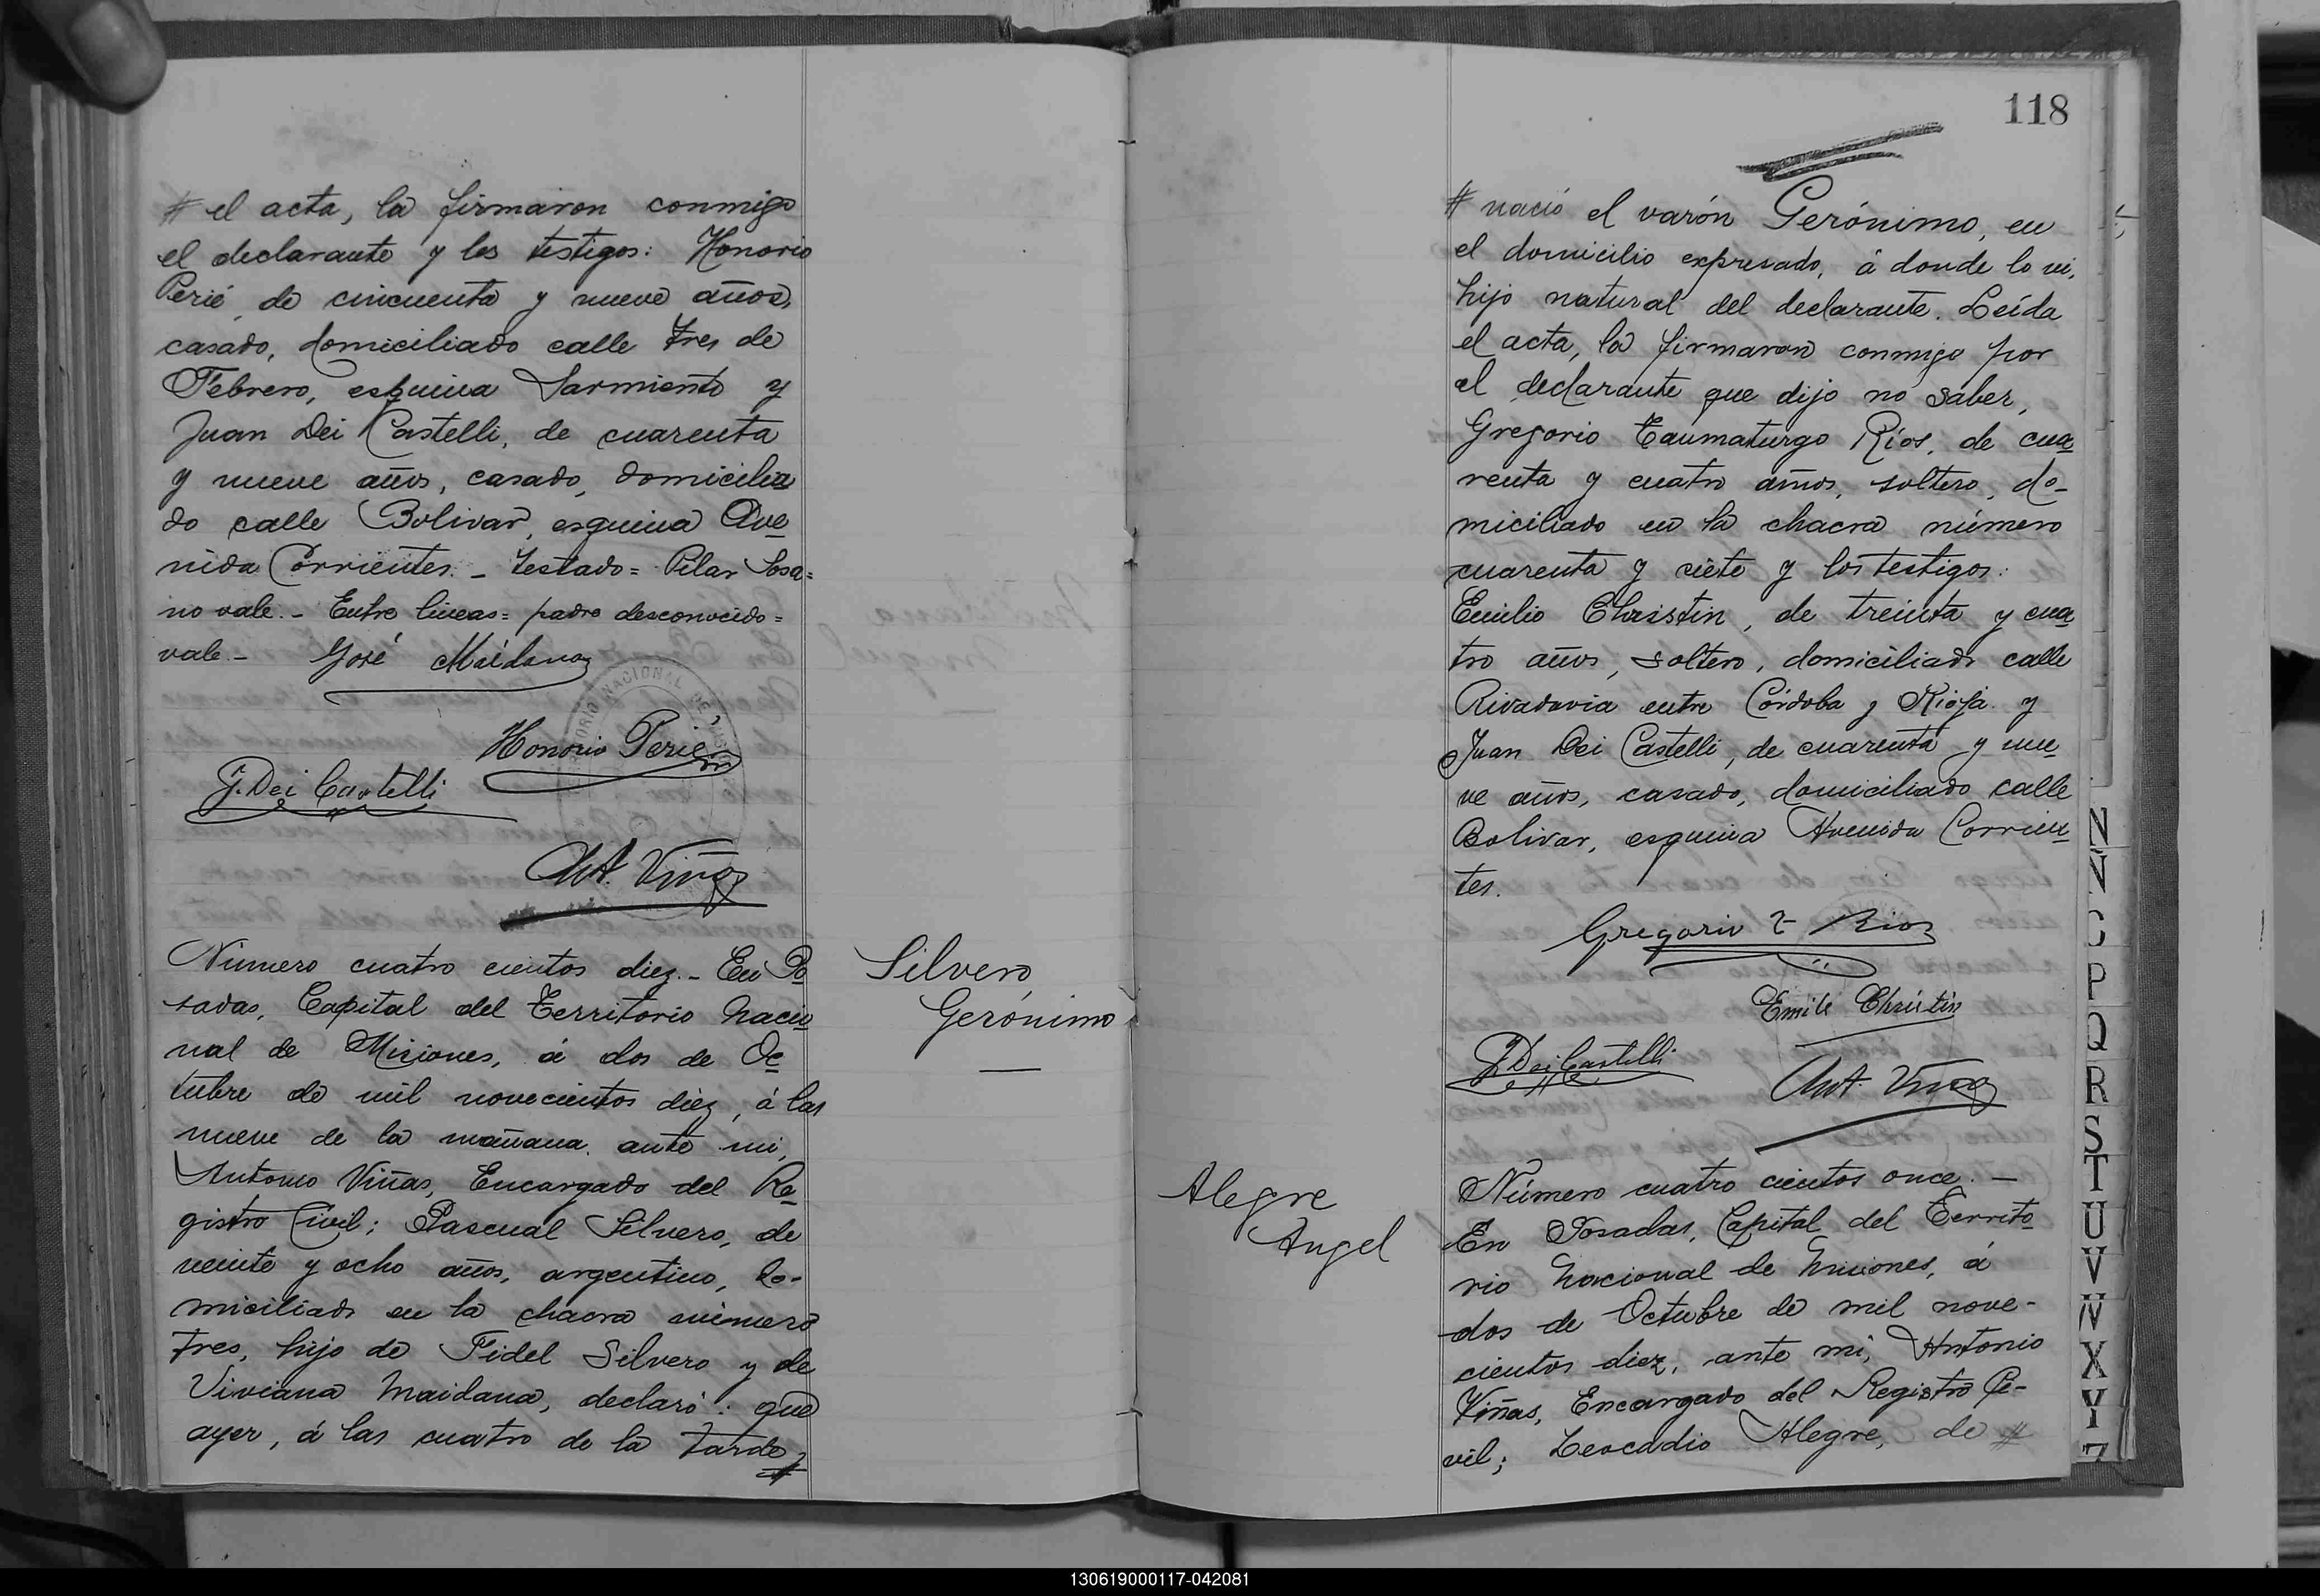 # el acta, la firmaron conmigo
el declarante y los testigos: Honorio
Perié, de cincuenta y nueve años,
casado, domiciliado calle tres de
Febrero, esquina Sarmiento y
Juan Dei Castelli, de cuarenta
y nueve años, casado, domicilia
do calle Bolivar, esquina Ave
nida Corrientes. - Testado = Pilar Sosa =
no vale. - Entre lineas = padre desconocido =
vale. - José Maidana
TERRITORIO NACIONAL DE
Honorio Perié
J. Dei Castelli
Ant. Viñas
Número cuatro cientos diez. - En Po
sadas, Capital del Territorio Nacio
nal de Misiones, á dos de Oc
tubre de mil novecientos diez, á las
nueve de la mañana, ante mi,
Antonio Viñas, Encargado del Re
gistro Civil; Pascual Silvero, de
veinte y ocho años, argentino, do-
miciliado en la chacra número
tres, hijo de Fidel Silvero y de
Viviana Maidana, declaró: que
ayer, á las cuatro de la tarde, #
Silvero,
Gerónimo
118
# nació el varón Gerónimo, en
el domicilio expresado, á donde lo vi,
hijo natural del declarante. Leída
el acta, la firmaron conmigo por
el declarante que dijo no saber,
Gregorio Taumaturgo Ríos, de cua
renta y cuatro años, soltero, do-
miciliado en la chacra número
cuarenta y siete y los testigos:
Emilio Christin, de treinta y cua
tro años, soltero, domiciliado calle
Rivadavia entre Córdoba y Rioja y
Juan Dei Castelli, de cuarenta y nue
ve años, casado, domiciliado calle
Bolivar, esquina Avenida Corrien
tes.
Gregorio T Rios
Emile Christin
J. Dei Castelli
Ant. Viñas
Alegre
Angel
Número cuatro cientos once. -
En Posadas, Capital del Territo
rio Nacional de Misiones, á
dos de Octubre de mil nove-
cientos diez, ante mi, Antonio
Viñas, Encargado del Registro Ci-
vil; Leocadio Alegre, de #
N
Ñ
O
P
Q
R
S
T
U
V
W
X
Y
Z
130619000117-042081